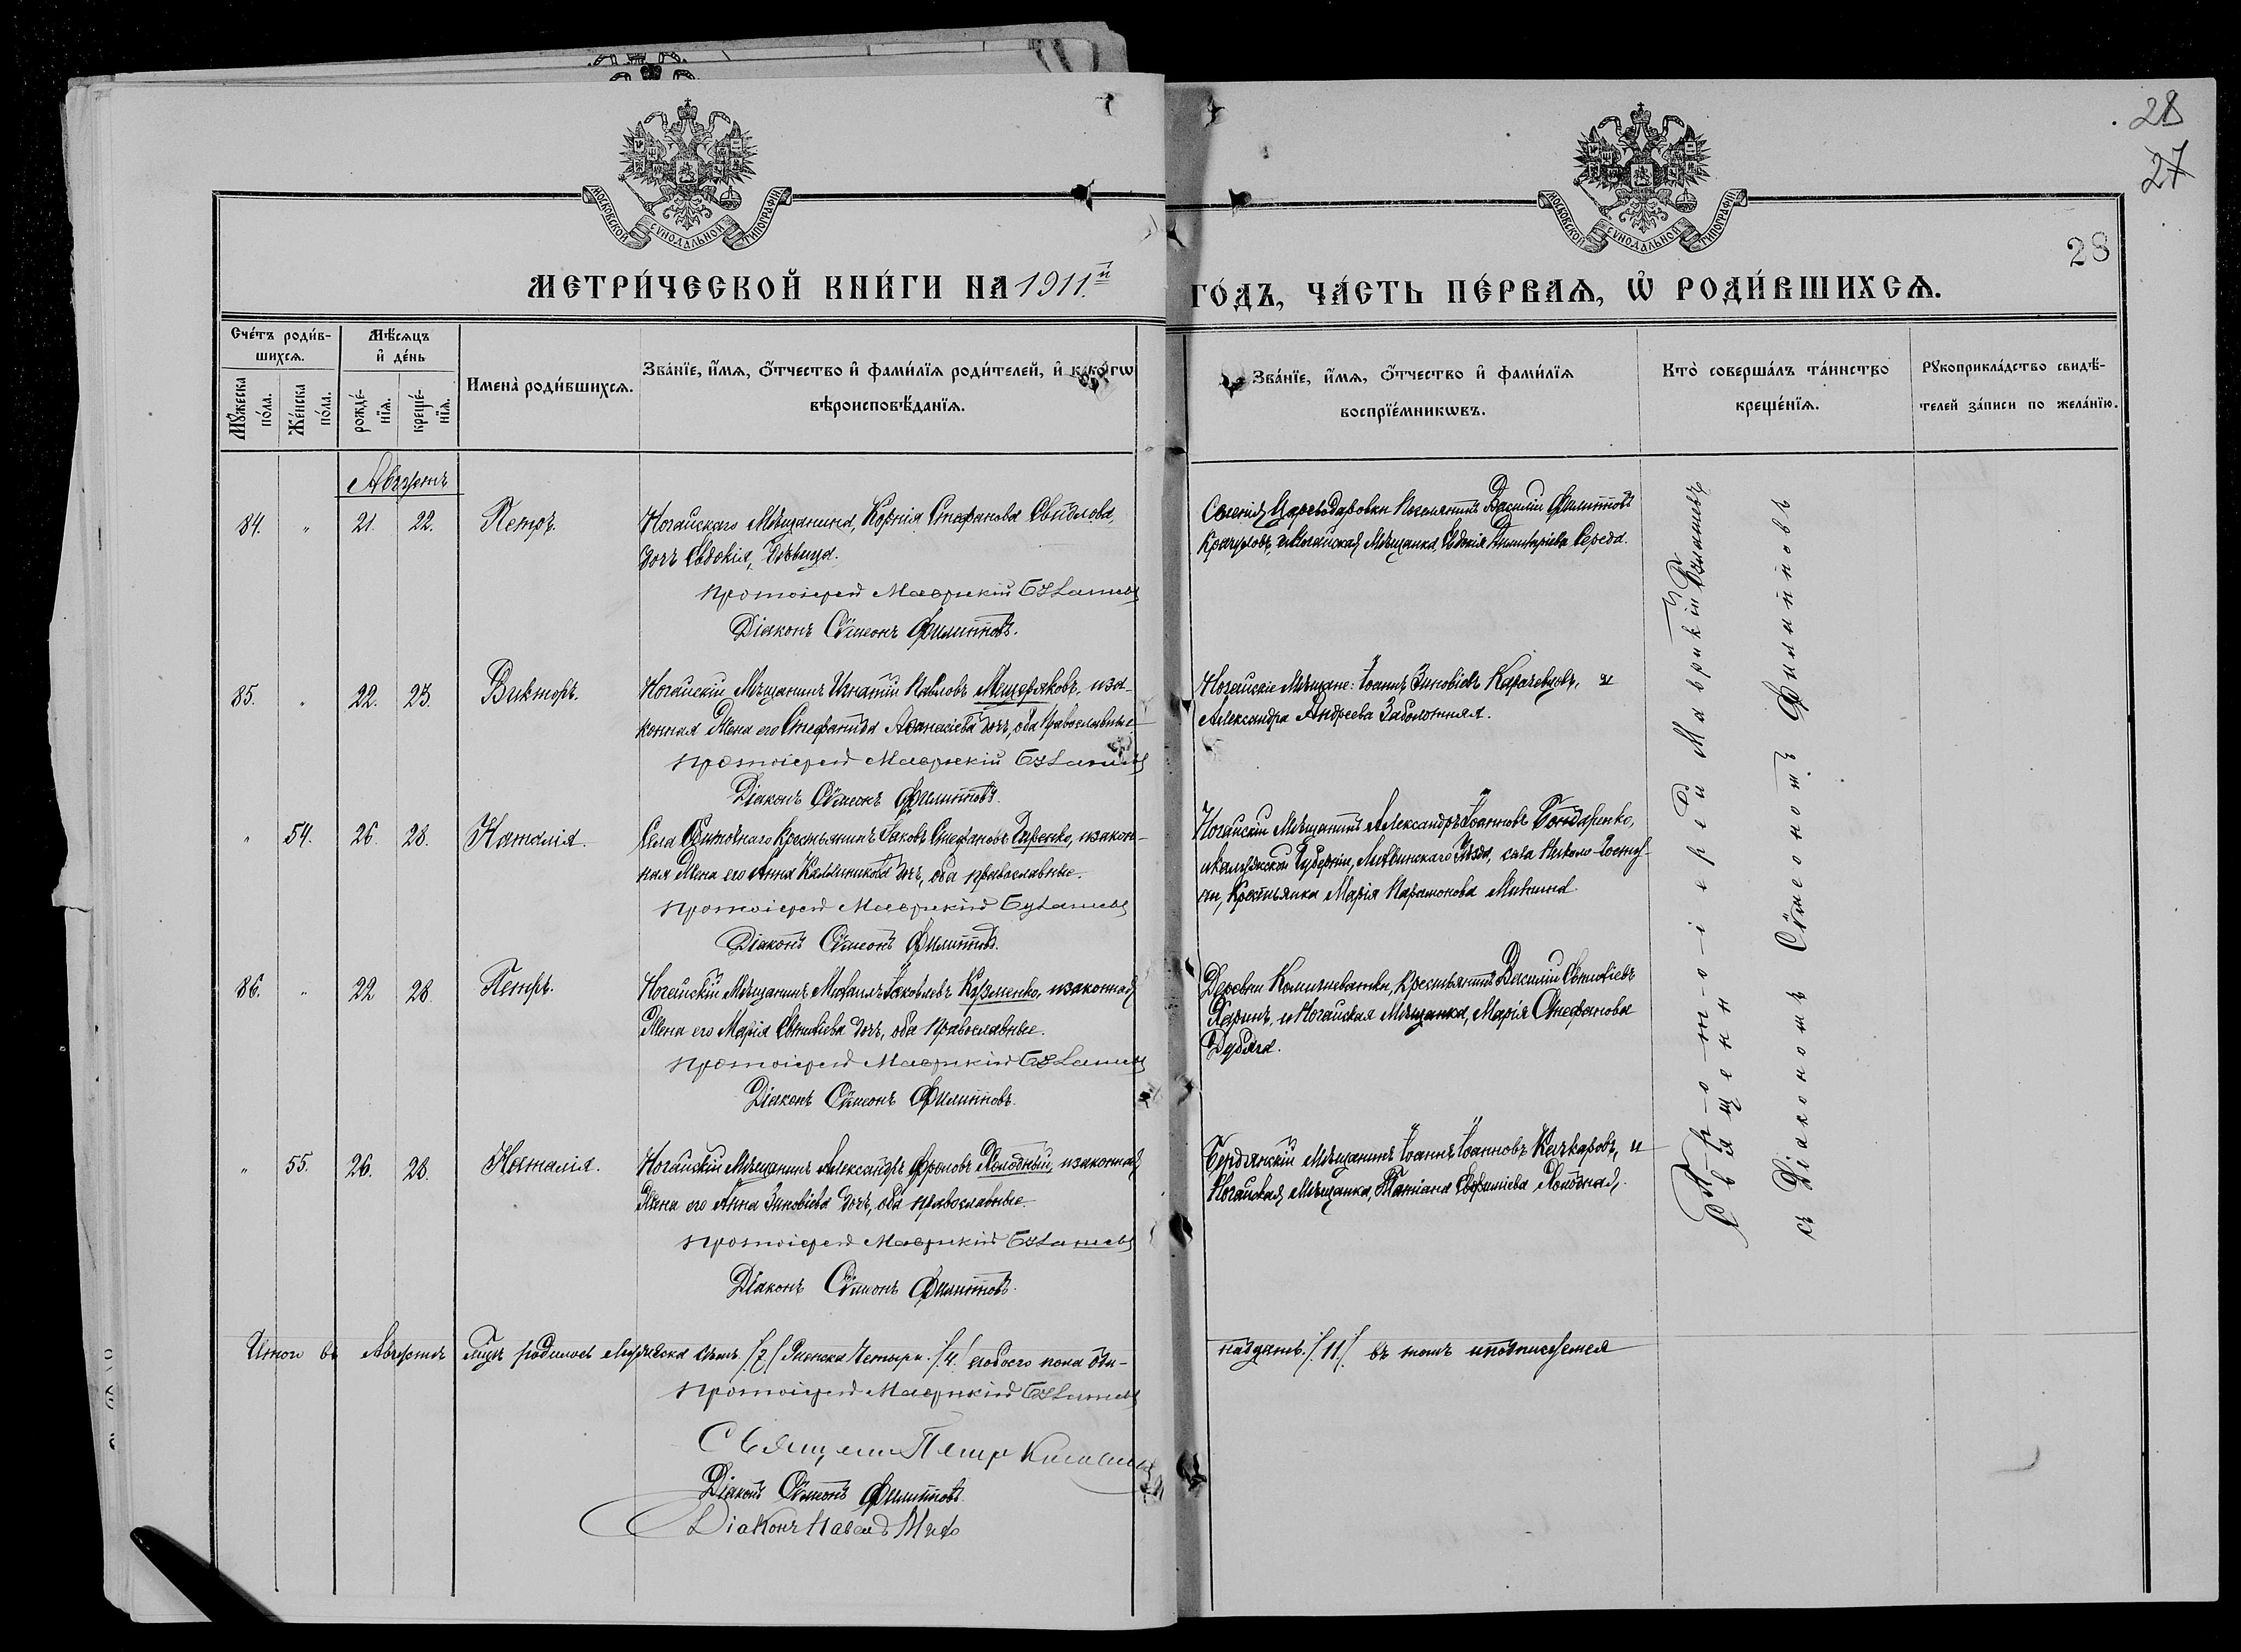 28
27
28
МОСКОВСКОЙ СУНОДАЛЬНОЙ ТИПОГРАФІИ
МОСКОВСКОЙ СУНОДАЛЬНОЙ ТИПОГРАФІИ
МЕТРИ́ЧЕСКОЙ КНИ́ГИ НА 1911й
ГО́ДЪ, ЧА́СТЬ ПЕ́РВАѦ, Ѡ҆ РОДИ́ВШИХСѦ.
Сче́тъ роди́в-
шихсѧ.
Мѣ́сѧцъ
и҆ де́нь
Мꙋ́жеска
по́ла.
Же́нска
по́ла.
рожде́-
нїѧ.
креще́-
нїѧ.
Имена̀ роди́вшихсѧ.
Зва́нїе, и҆́мѧ, ѻ҆́тчество и҆ фами́лїѧ роди́телей, и҆ како́гѡ
вѣроисповѣ́данїѧ.
Зва́нїе, и҆́мѧ, ѻ҆́тчество и҆ фами́лїѧ
воспрїе́мникѡвъ.
Кто̀ соверша́лъ та́инство
креще́нїѧ.
Рꙋкоприкла́дство свидѣ́-
телей за́писи по жела́нїю.
Августъ
84. " 21. 22. Петръ.
Ногайскаго Мѣщанина, Корнія Стефанова Свидлова,
дочь Евдокія, дѣвица.
Протоіерей Маврикій
Діаконъ Сѵмеонъ Филипповъ.
Селенія Царевдаровки Поселянинъ Василій Филипповъ
и Ногайская Мѣщанка Евдокія Димитріева Середа.
85. " 22. 23. Викторъ.
Ногайскій Мѣщанинъ Игнатій Павловъ Мещеряковъ, и зa-
конная Жена его Стефанида Аѳанасіева дочь, оба Православные
Протоіерей Маврикій
Діаконъ Сѵмеонъ Филипповъ.
Ногайскіе Мѣщане: Іоаннъ Зиновіевъ Карачевцовъ, и
Александра Андреева Заболотняя.
" 54. 26. 28. Наталія.
Села Крестьянинъ Іаковъ Стефановъ Гиренко, и закон-
ная Жена его Анна Каллиникова дочь, оба православные.
Протоіерей Маврикій
Діаконъ Сѵмеонъ Филипповъ.
Ногайскій Мѣщанинъ Александръ Іоанновъ Бондаренко,
и Калужской Губерніи, уѣзда, села Николо-
Крестьянка Марія Парамонова Микина.
86. " 22 28. Петръ.
Ногайскій Мѣщанинъ Михаилъ Іаковлевъ Кузменко, и законная
Жена его Марія Евтихіева дочь, оба Православные.
Протоіерей Маврикій
Діаконъ Сѵмеонъ Филипповъ.
Деревни Крестьянинъ Василій Евтихіевъ
и Ногайская Мѣщанка, Марія Стефанова
Дубяга.
" 55. 26. 28. Наталія.
Ногайскій Мѣщанинъ Александръ Фроловъ Холодный, и законная
Жена его Анна Зиновіева дочь, оба православные.
Протоіерей Маврикій
Діаконъ Сѵмеонъ Филипповъ.
Бердянскій Мѣщанинъ Іоаннъ Іоанновъ Качкаровъ, и
Ногайская Мѣщанка, Татіана Евфиміева Холодная.
Протоіерей Маврикій
Священн
съ Діакономъ Сѵмеономъ Филипповъ
Итого въ Августѣ родилось Мужеска семь /7/ Женска четыре /4/ обоего пола оди-
надцать. /11/ въ томъ и подписуемся
Протоіерей Маврикій
Священ Петръ
Діаконъ Сѵмеонъ Филипповъ
Діаконъ Павелъ